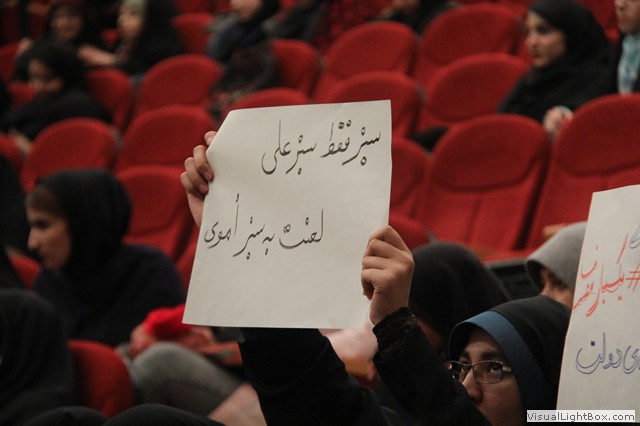 سبز فقط سبز علی
لعنت به سبز اموی
#یکبار
دولت
VisualLightBox.com